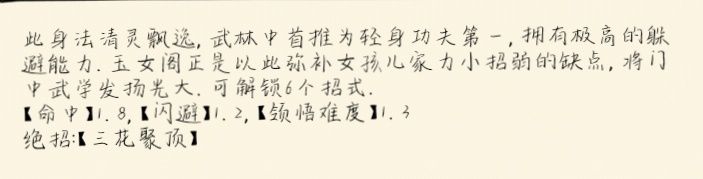 此身法清灵飘逸,武林中首推为轻身功夫第一,拥有极高的躲
避能力.玉女阁正是以此弥补女孩儿家力小招弱的缺点,将门
中武学发扬光大.可解锁6个招式.
【命中】1.8,【闪避】1.2,【领悟难度】1.3
绝招:【三花聚顶】